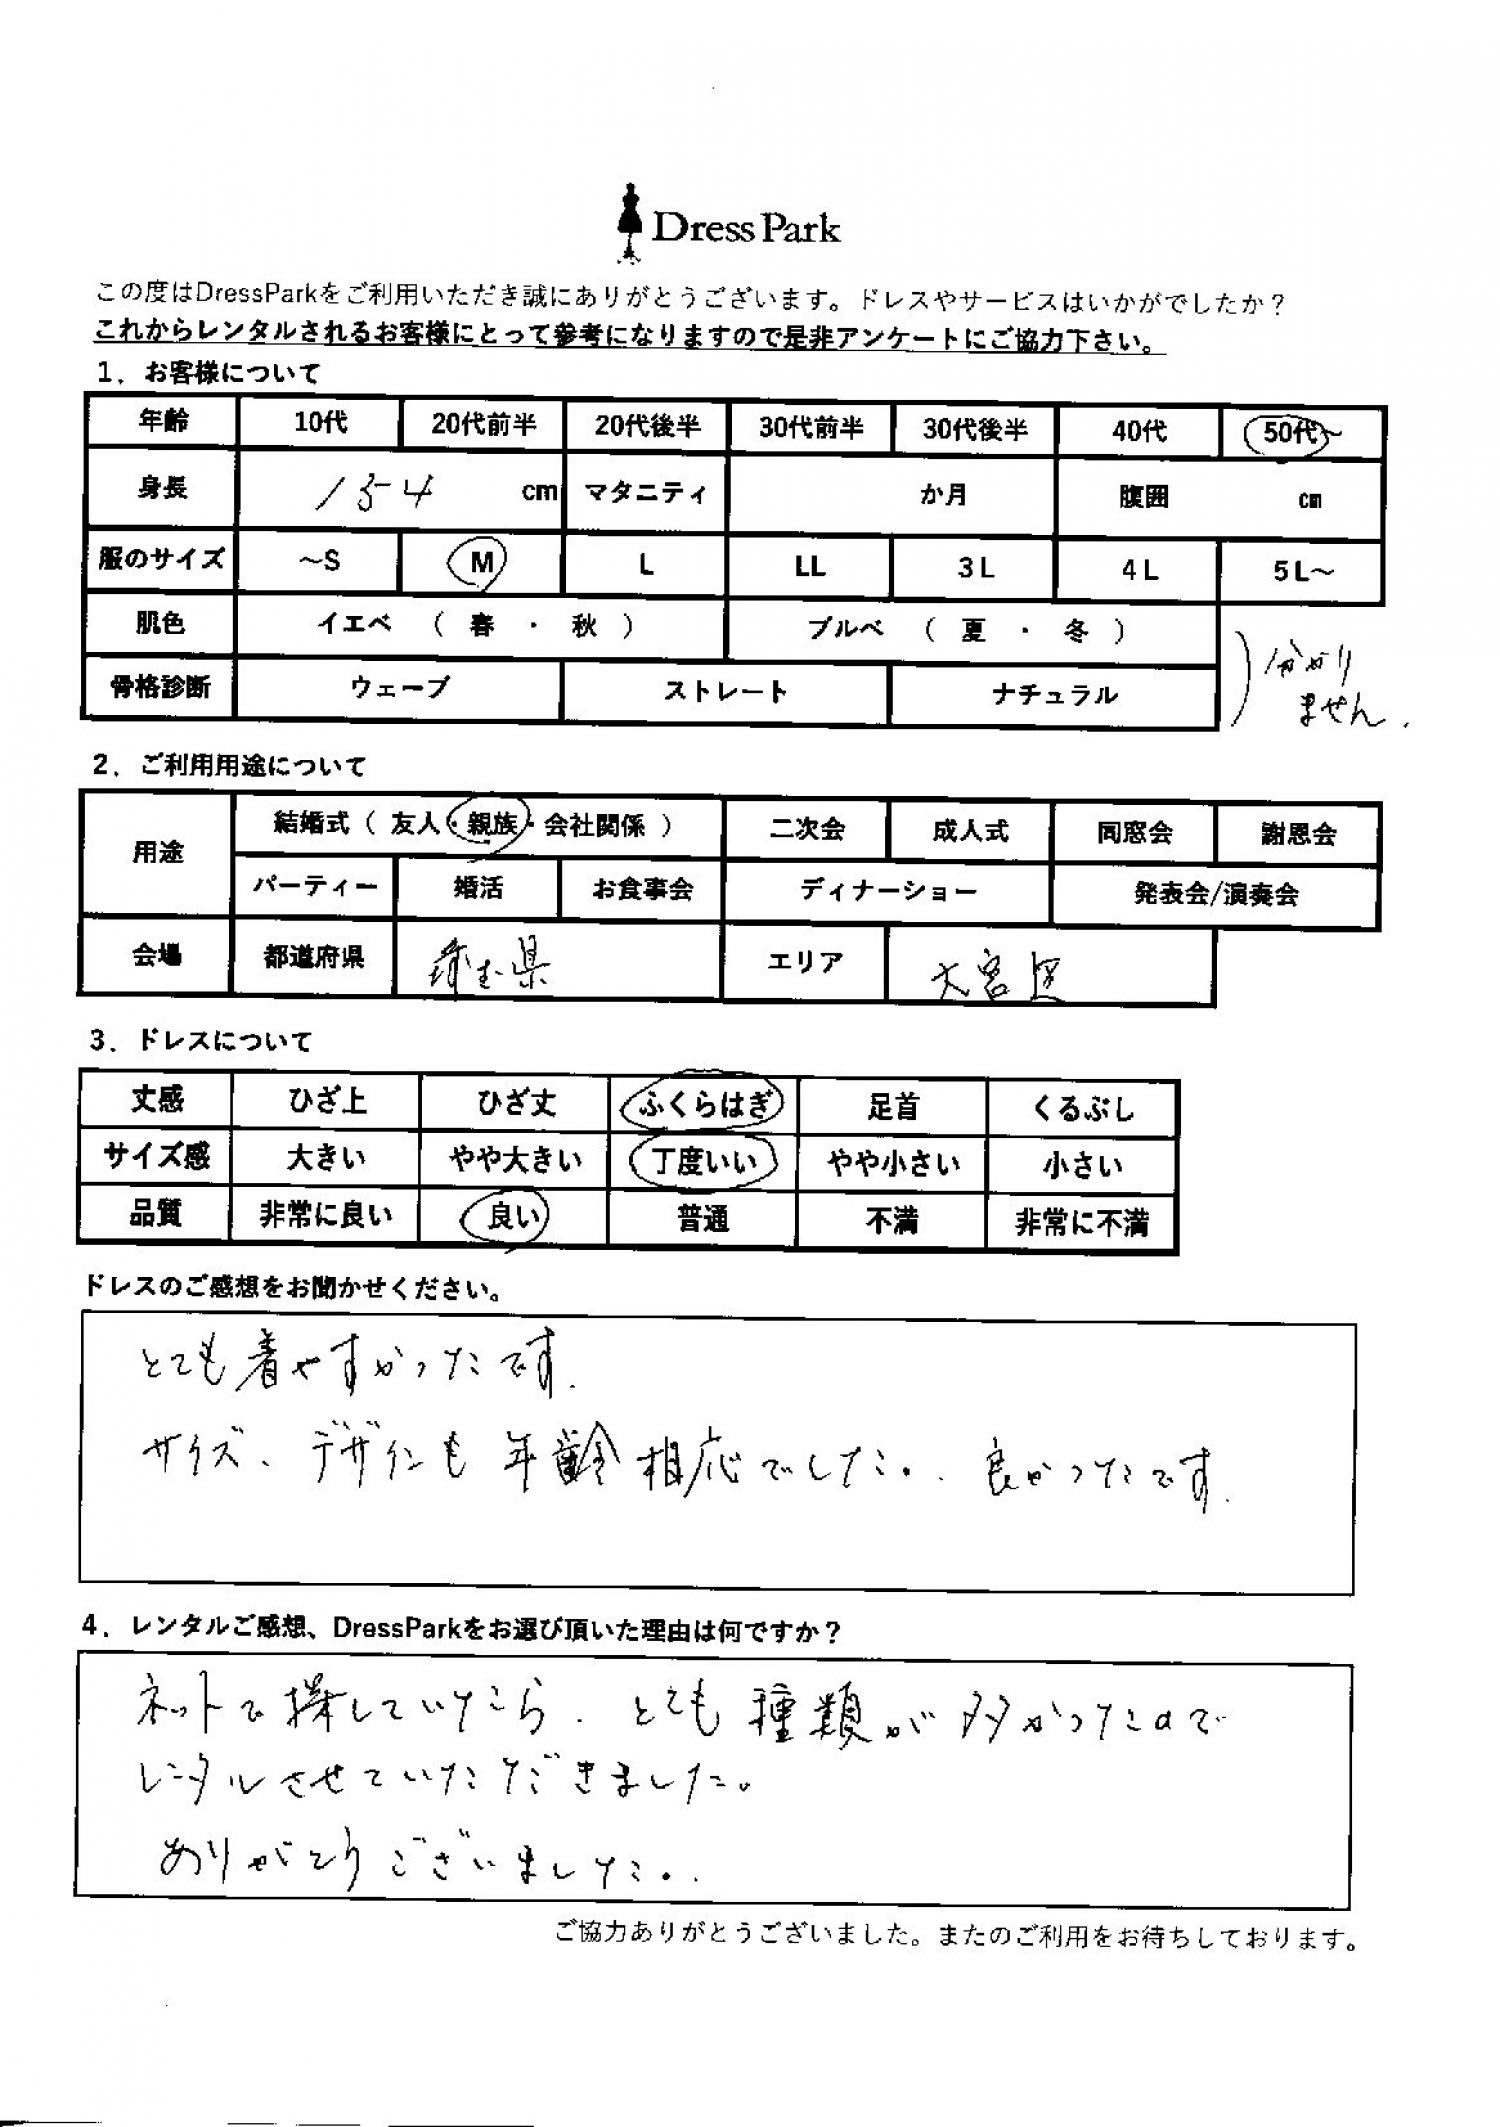 Dress Park
この度はDressParkをご利用いただき誠にありがとうございます。ドレスやサービスはいかがでしたか？
これからレンタルされるお客様にとって参考になりますので是非アンケートにご協力下さい。
1．お客様について
年齢 10代 20代前半 20代後半 30代前半 30代後半 40代 50代～
身長 154 cm マタニティ か月 腹囲 cm
服のサイズ ～S M L LL 3L 4L 5L～
肌色 イエベ （ 春 ・ 秋 ） ブルベ （ 夏 ・ 冬 ）
骨格診断 ウェーブ ストレート ナチュラル
分かり
ません.
2．ご利用用途について
用途 結婚式（ 友人・親族・会社関係 ） 二次会 成人式 同窓会 謝恩会
パーティー 婚活 お食事会 ディナーショー 発表会/演奏会
会場 都道府県 埼玉県 エリア 大宮区
3．ドレスについて
丈感 ひざ上 ひざ丈 ふくらはぎ 足首 くるぶし
サイズ感 大きい やや大きい 丁度いい やや小さい 小さい
品質 非常に良い 良い 普通 不満 非常に不満
ドレスのご感想をお聞かせください。
とても着やすかったです.
サイズ、デザインも年齢相応でした. 良かったです.
4．レンタルご感想、DressParkをお選び頂いた理由は何ですか？
ネットで探していたら. とても種類が多かったので
レンタルさせていただきました。
ありがとうございました.
ご協力ありがとうございました。またのご利用をお待ちしております。